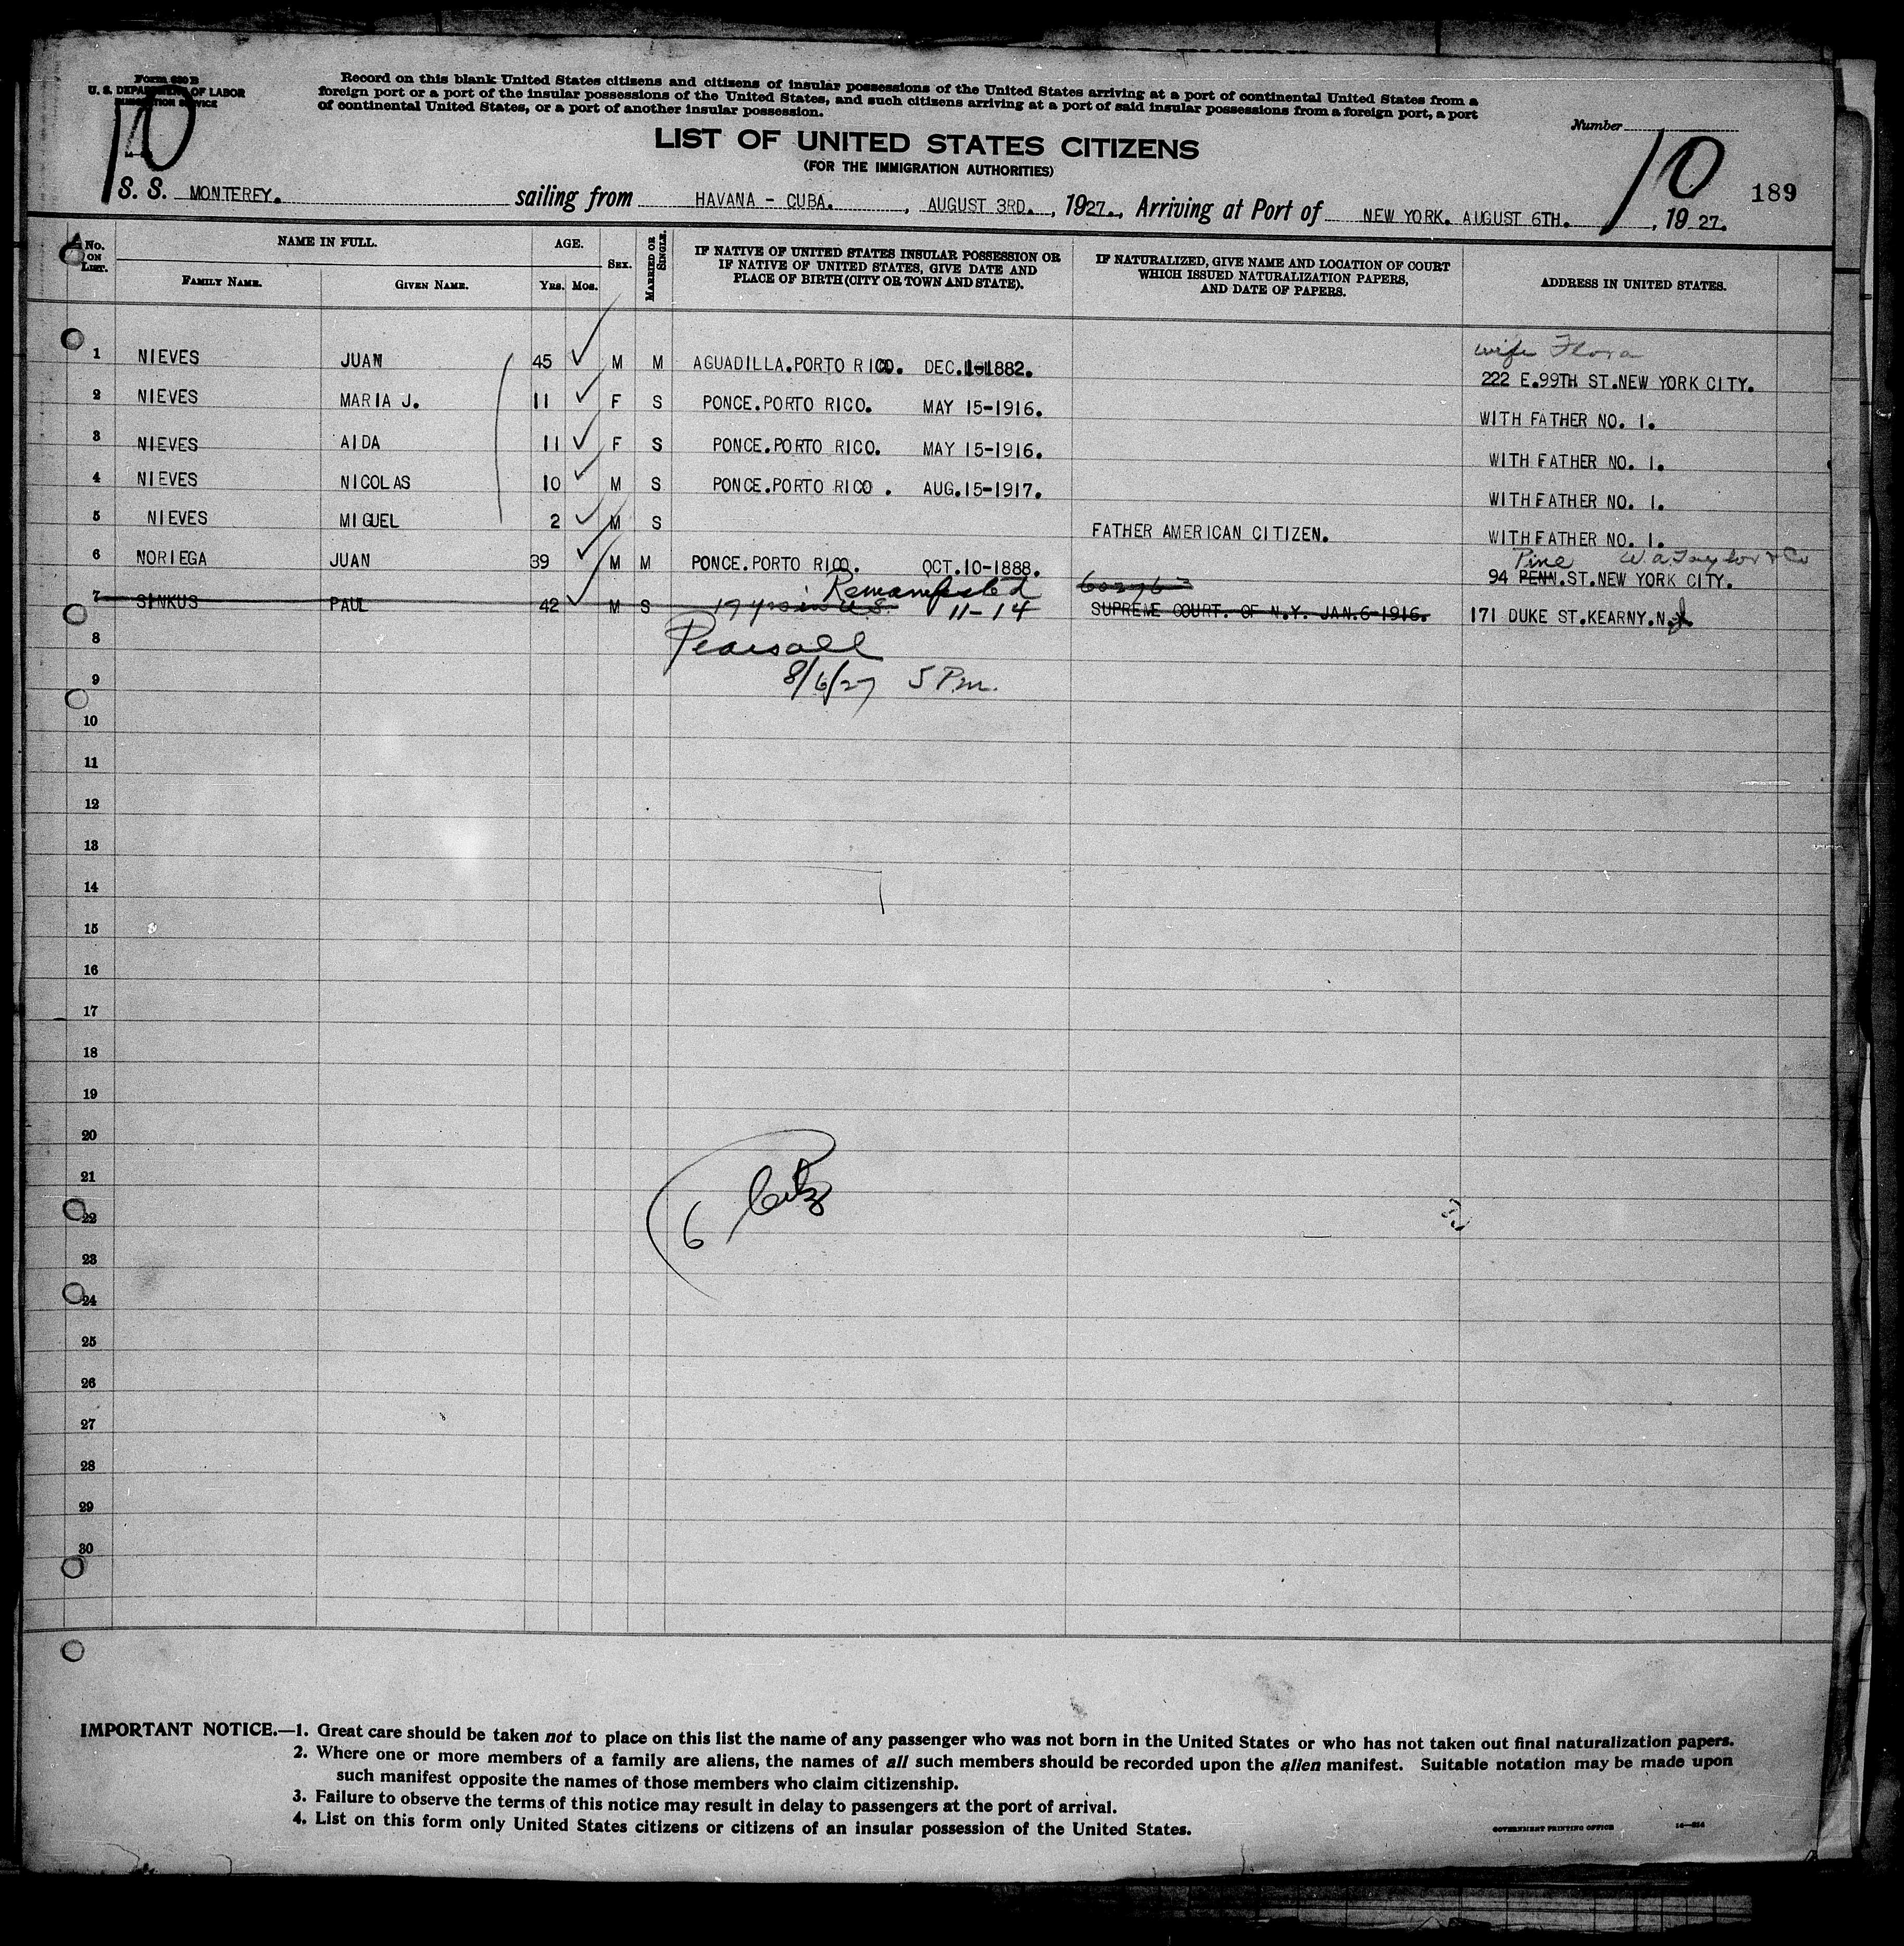 Form 630 B
U. S. DEPARTMENT OF LABOR
IMMIGRATION SERVICE
10
Record on this blank United States citizens and citizens of insular possessions of the United States arriving at a port of continental United States from a
foreign port or a port of the insular possessions of the United States, and such citizens arriving at a port of said insular possessions from a foreign port, a port
of continental United States, or a port of another insular possession.
Number
LIST OF UNITED STATES CITIZENS
(FOR THE IMMIGRATION AUTHORITIES)
10
189
S. S. MONTEREY. sailing from HAVANA - CUBA. , AUGUST 3RD. , 1927., Arriving at Port of NEW YORK. AUGUST 6TH. , 19 27.
No. ON LIST. NAME IN FULL. AGE. SEX. MARRIED OR SINGLE. IF NATIVE OF UNITED STATES INSULAR POSSESSION OR IF NATIVE OF UNITED STATES, GIVE DATE AND PLACE OF BIRTH (CITY OR TOWN AND STATE). IF NATURALIZED, GIVE NAME AND LOCATION OF COURT WHICH ISSUED NATURALIZATION PAPERS, AND DATE OF PAPERS. ADDRESS IN UNITED STATES.
FAMILY NAME. GIVEN NAME. YRS. MOS.
wife Flora
1 NIEVES JUAN 45 M M AGUADILLA.PORTO RICO. DEC.1-1882. 222 E.99TH ST.NEW YORK CITY.
2 NIEVES MARIA J. 11 F S PONCE.PORTO RICO. MAY 15-1916. WITH FATHER NO. 1.
3 NIEVES AIDA 11 F S PONCE.PORTO RICO. MAY 15-1916. WITH FATHER NO. 1.
4 NIEVES NICOLAS 10 M S PONCE.PORTO RICO . AUG.15-1917. WITH FATHER NO. 1.
5 NIEVES MIGUEL 2 M S FATHER AMERICAN CITIZEN. WITH FATHER NO. 1.
Pine W.A.Taylor & Co
6 NORIEGA JUAN 39 M M PONCE.PORTO RICO. OCT.10-1888. 94 PENN.ST.NEW YORK CITY.
Remanifested
7 SINKUS PAUL 42 M S 17 yrs in U.S. 11-14 SUPREME COURT. OF N.Y. JAN.6-1916. 171 DUKE ST.KEARNY.N.J
8 Pearsall
9 8/6/27 5 P.m.
10
11
12
13
14
15
16
17
18
19
20
21
22 6 Citz
23
24
25
26
27
28
29
30
IMPORTANT NOTICE.—1. Great care should be taken not to place on this list the name of any passenger who was not born in the United States or who has not taken out final naturalization papers.
2. Where one or more members of a family are aliens, the names of all such members should be recorded upon the alien manifest. Suitable notation may be made upon
such manifest opposite the names of those members who claim citizenship.
3. Failure to observe the terms of this notice may result in delay to passengers at the port of arrival.
4. List on this form only United States citizens or citizens of an insular possession of the United States.
GOVERNMENT PRINTING OFFICE